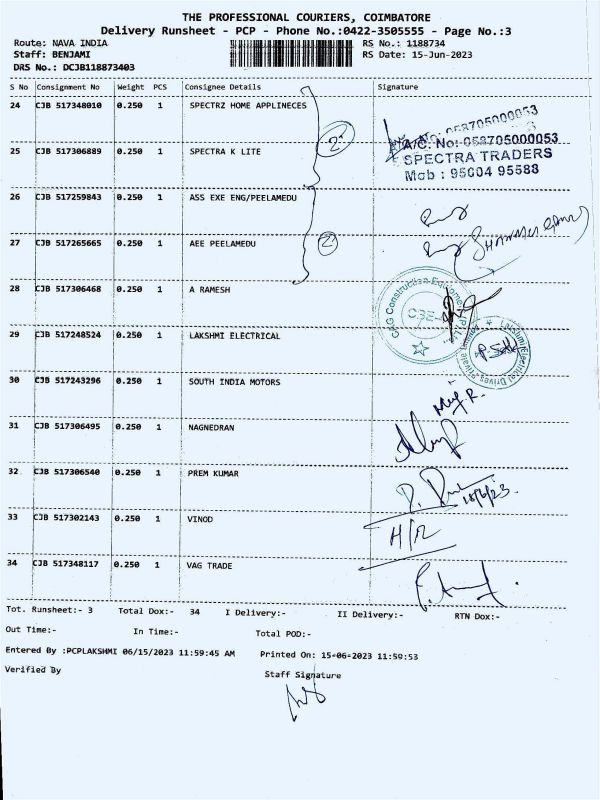 THE PROFESSIONAL COURIERS, COIMBATORE
Delivery Runsheet - PCP - Phone No.:0422-3505555 - Page No.:3
Route: NAVA INDIA RS No.: 1188734
Staff: BENJAMI RS Date: 15-Jun-2023
DRS No.: DCJB118873403
S No Consignment No Weight PCS Consignee Details Signature
24 CJB 517348010 0.250 1 SPECTRZ HOME APPLINECES
2
A/C. No: 058705000053
25 CJB 517306889 0.250 1 SPECTRA K LITE
SPECTRA TRADERS
Mob : 95004 95588
26 CJB 517259843 0.250 1 ASS EXE ENG/PEELAMEDU
27 CJB 517265665 0.250 1 AEE PEELAMEDU
2
28 CJB 517306468 0.250 1 A RAMESH
29 CJB 517248524 0.250 1 LAKSHMI ELECTRICAL
Lakshmi Electrical Drives Private Limited
30 CJB 517243296 0.250 1 SOUTH INDIA MOTORS
31 CJB 517306495 0.250 1 NAGNEDRAN
32 CJB 517306540 0.250 1 PREM KUMAR
33 CJB 517302143 0.250 1 VINOD
H/R
34 CJB 517348117 0.250 1 VAG TRADE
Tot. Runsheet:- 3 Total Dox:- 34 I Delivery:- II Delivery:- RTN Dox:-
Out Time:- In Time:- Total POD:-
Entered By :PCPLAKSHMI 06/15/2023 11:59:45 AM Printed On: 15-06-2023 11:59:53
Verified By Staff Signature